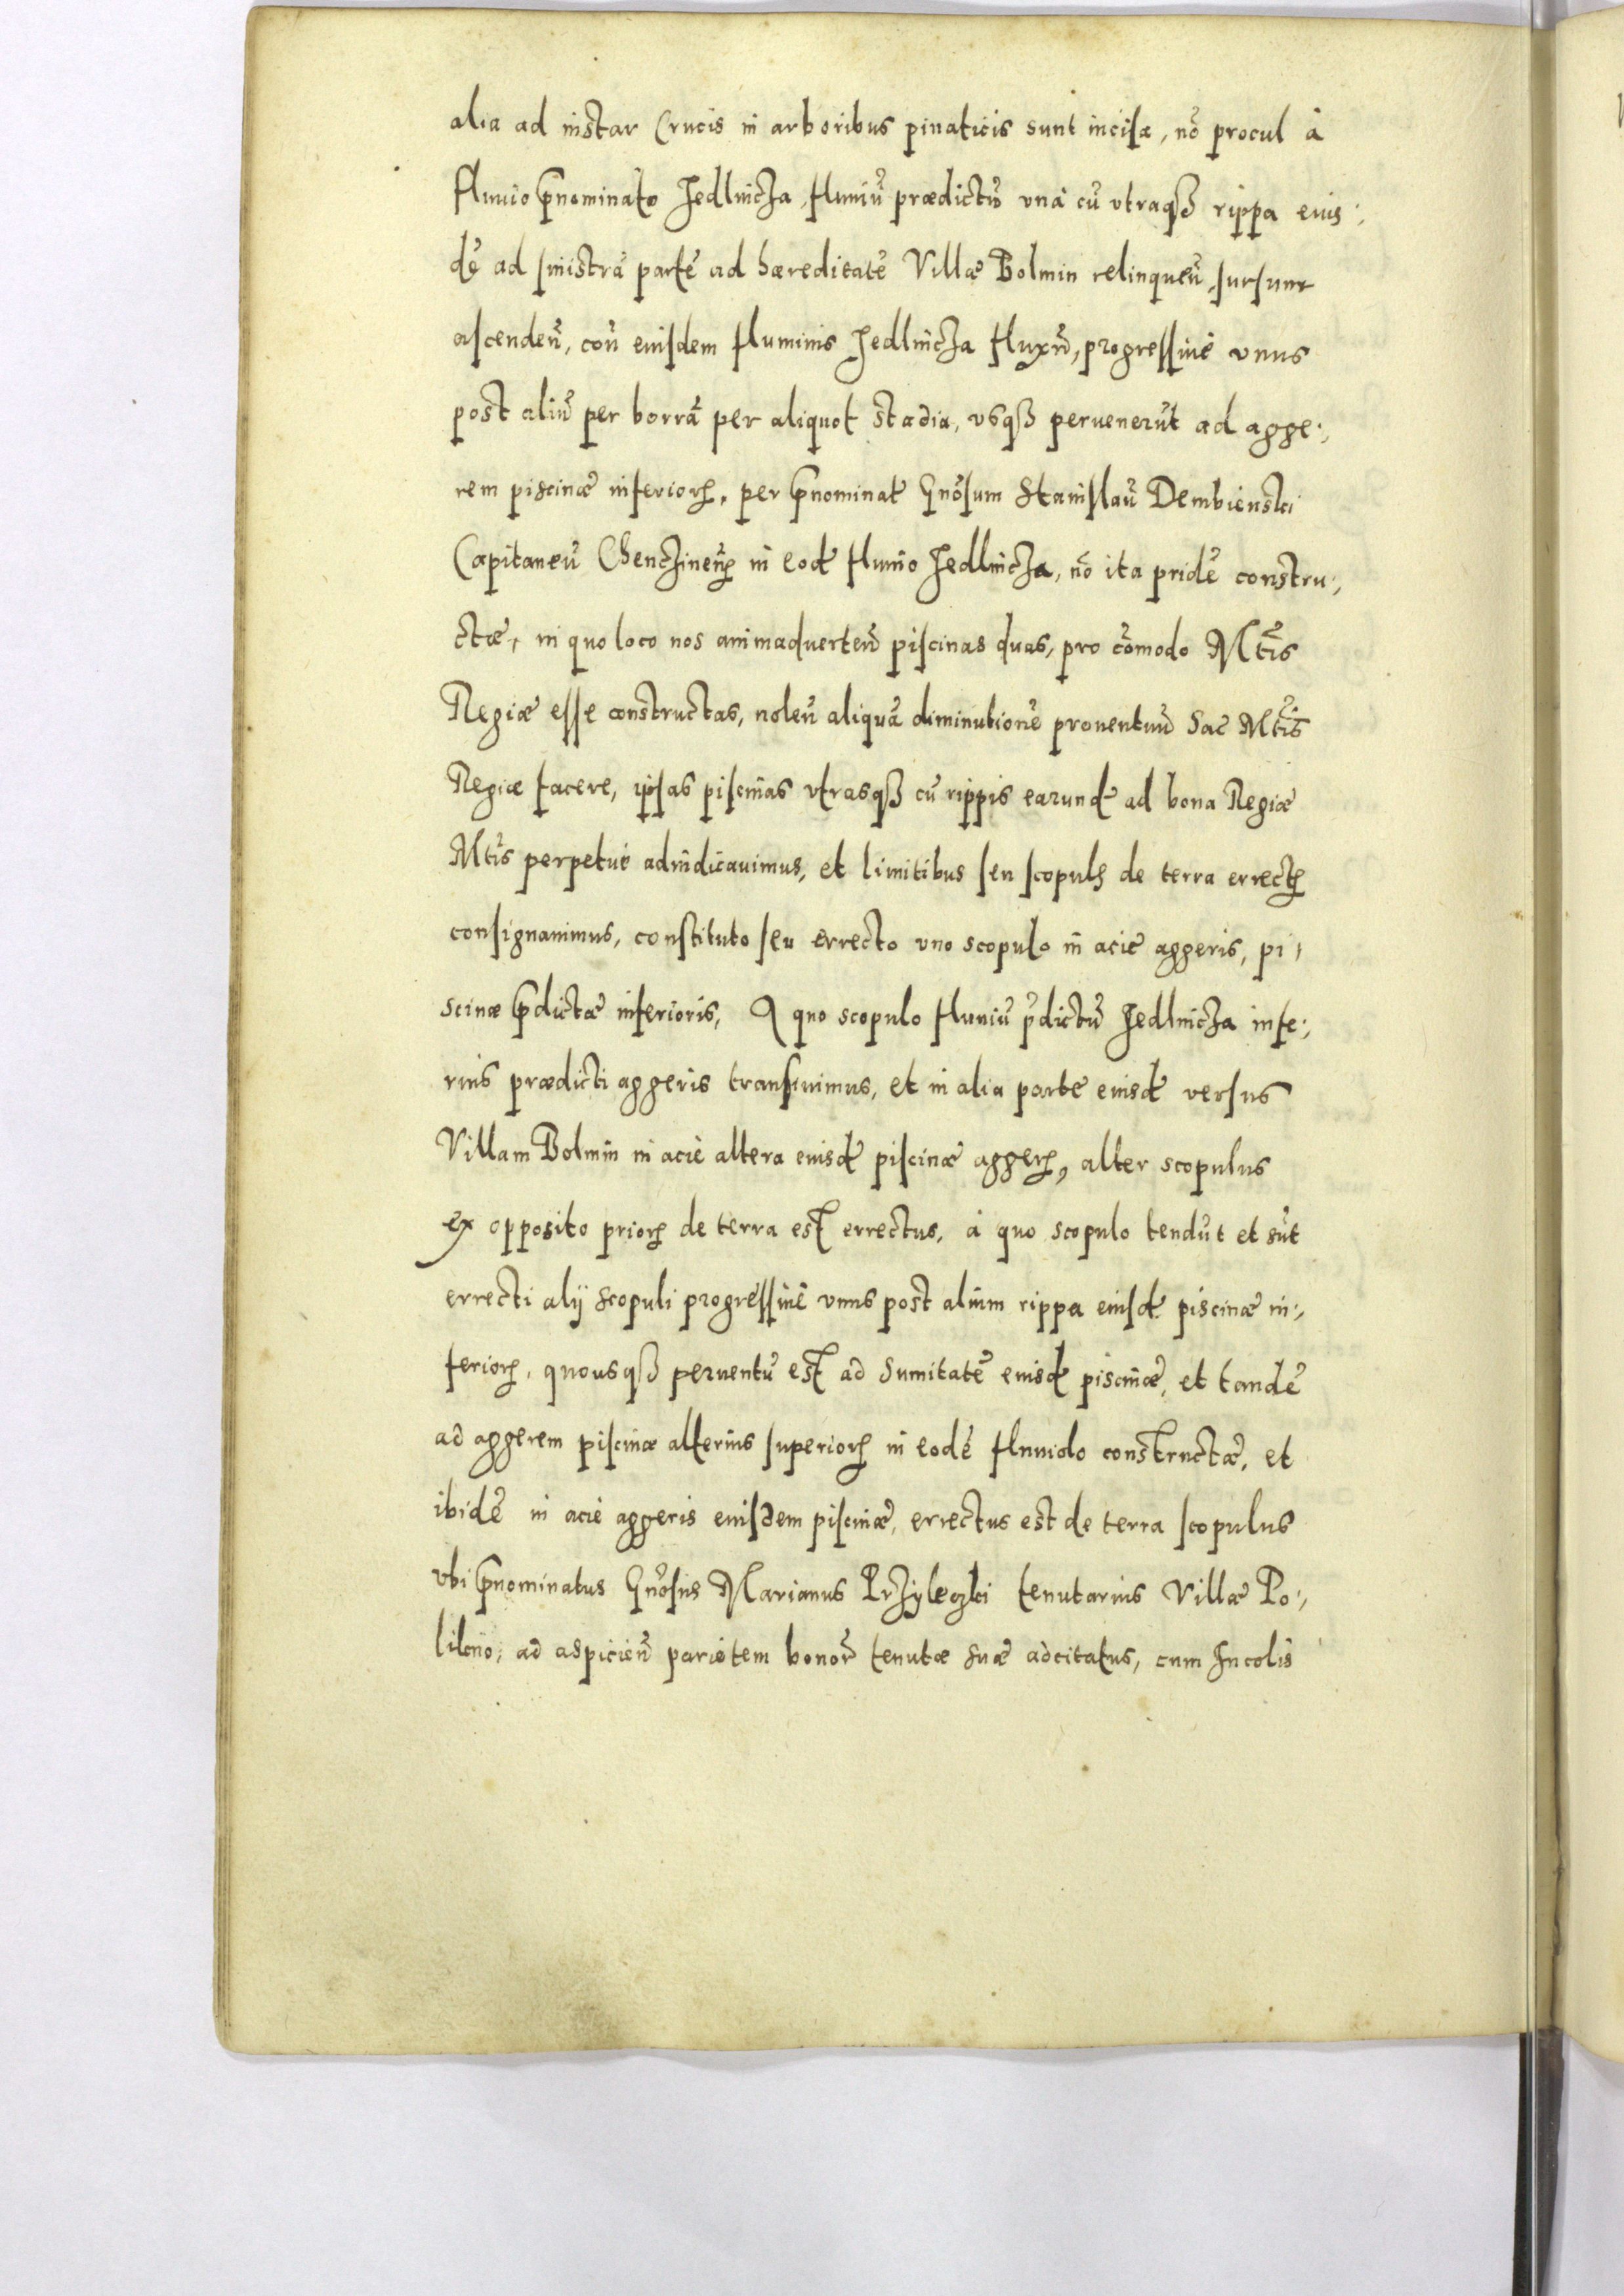 alia ad instar Crucis in arboribus pinaticis sunt incisæ, nō procul à
fluuio p̃nominato Jedlnicza, fluuiū prædictū vnà cū vtraqȝ rippa eius:,
dē ad sinistrā partē ad hæreditatē Villæ Bolmin relinquen̄, sursum
ascenden̄, con̄ eiusdem fluminis Jedlnicza fluxū, progressiuè vnus
post aliū per borrā per aliquot stadia, vsqȝ peruenerūt ad agge:,
rem piscinæ inferioris, per p̃nominat Gnōsum Stanislaū Dembienski
Capitaneū Chenczinen̄ in eod fluuio Jedlnicza, nō ita pridē constru:,
ctæ, in quo loco nos animaduerten̄ piscinas duas, pro cōmodo Mt̄is
Regiæ esse constructas, nolen̄ aliquā diminutionē prouentuū Sac Mt̄is
Regiæ facere, ipsas piscinas vtrasqȝ cū rippis earund ad bona Regiæ
Mt̄is perpetuè adiudicauimus, et limitibus seu scopulis de terra errectis
consignauimus, constituto seu errecto vno scopulo in acie aggeris, pi:
scinæ p̃dictæ inferioris, A quo scopulo fluuiū p̄dictū Jedlnicza infe:,
rius prædicti aggeris transiuimus, et in alia parte eiusd versus
Villam Bolmin in acie altera eiusd piscinæ aggeris, alter scopulus
ex opposito prioris de terra est errectus, à quo scopulo tendūt et sūt
errecti alij scopuli progressiuè vnus post alium rippa eiusd piscinæ in:,
ferioris, quousqȝ peruentū est ad Sumitatē eiusd piscinæ, et tandē
ad aggerem piscinæ alterius superioris in eodē fluuiolo constructæ, et
ibidē in acie aggeris eiusdem piscinæ, errectus est de terra scopulus
vbi p̃nominatus Gnōsus Marianus Przylęczki tenutarius Villæ Po:,
likno, ad aspicien̄ parietem bonor̄ tenutæ suæ adcitatus, cum Incolis